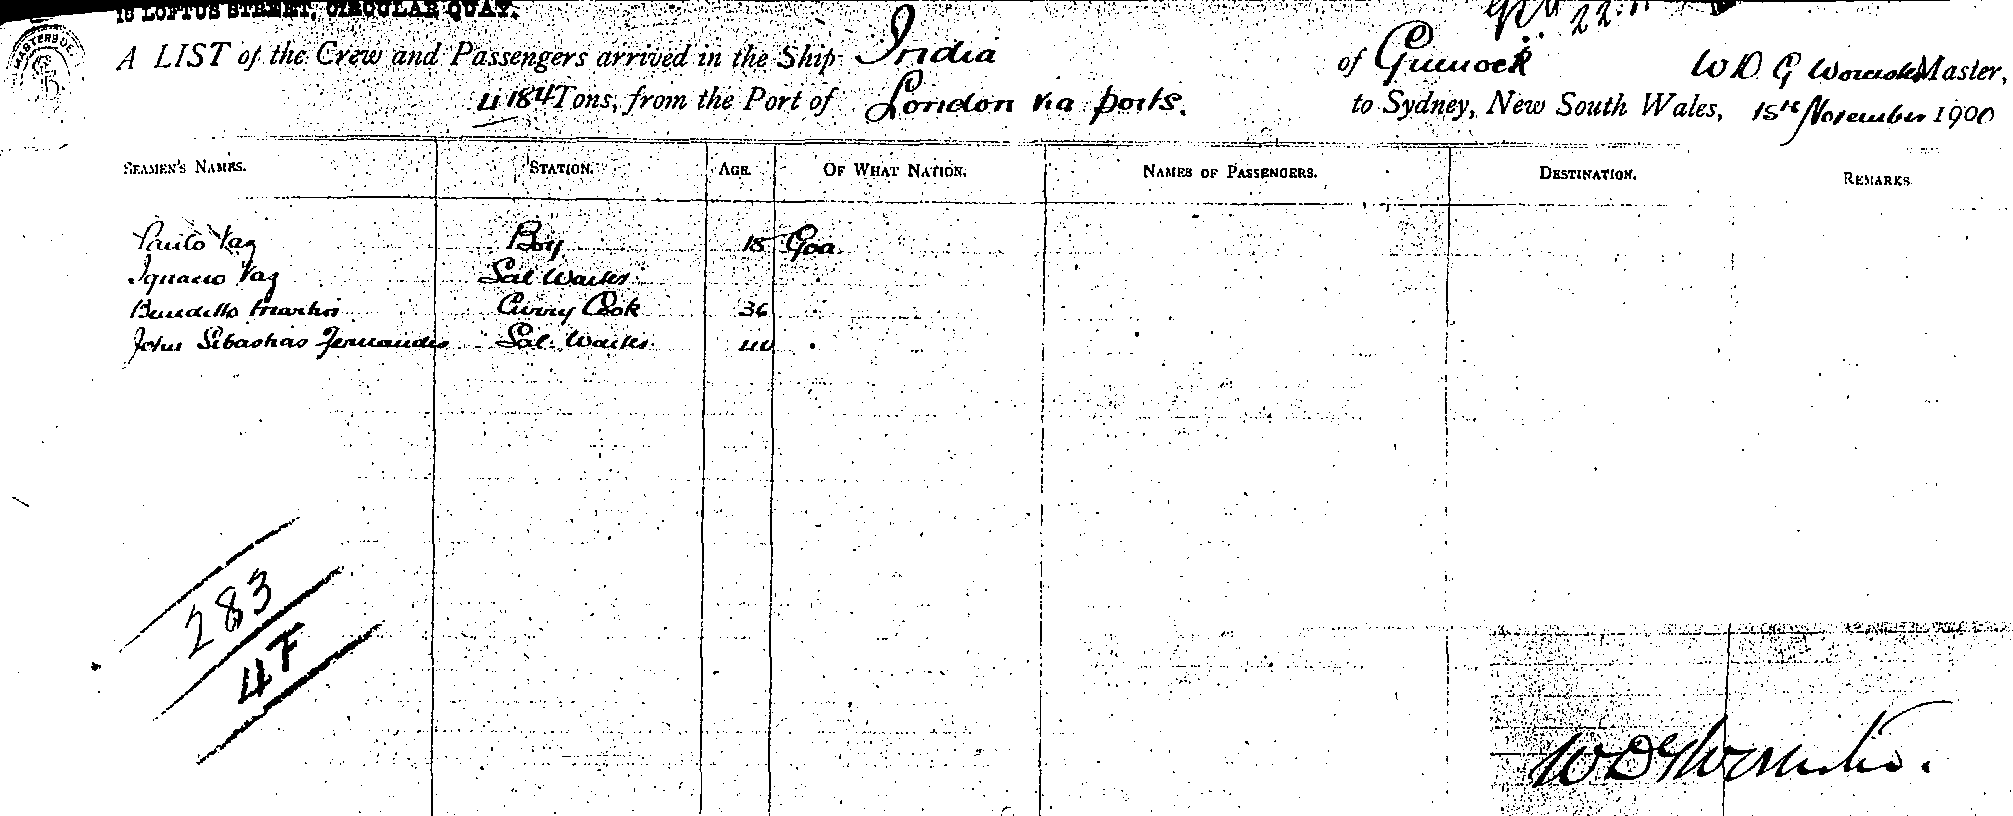 15 LOFTUS STREET, CIRCULAR QUAY.
22.11
A LIST of the Crew and Passengers arrived in the Ship India of Greenock W D G Worcester Master,
4184 Tons, from the Port of London via ports. to Sydney, New South Wales, 15th November 1900
SEAMEN'S NAMES. STATION. AGE. OF WHAT NATION. NAMES OF PASSENGERS. DESTINATION. REMARKS
Paulo Vaz Boy 15 Goa
Ignacio Vaz Sal Waiter
Benedetto Martins Curry Cook 36
John Sebastiao Fernandes Sal. Waiter 40
283
47
W D G Worcester.